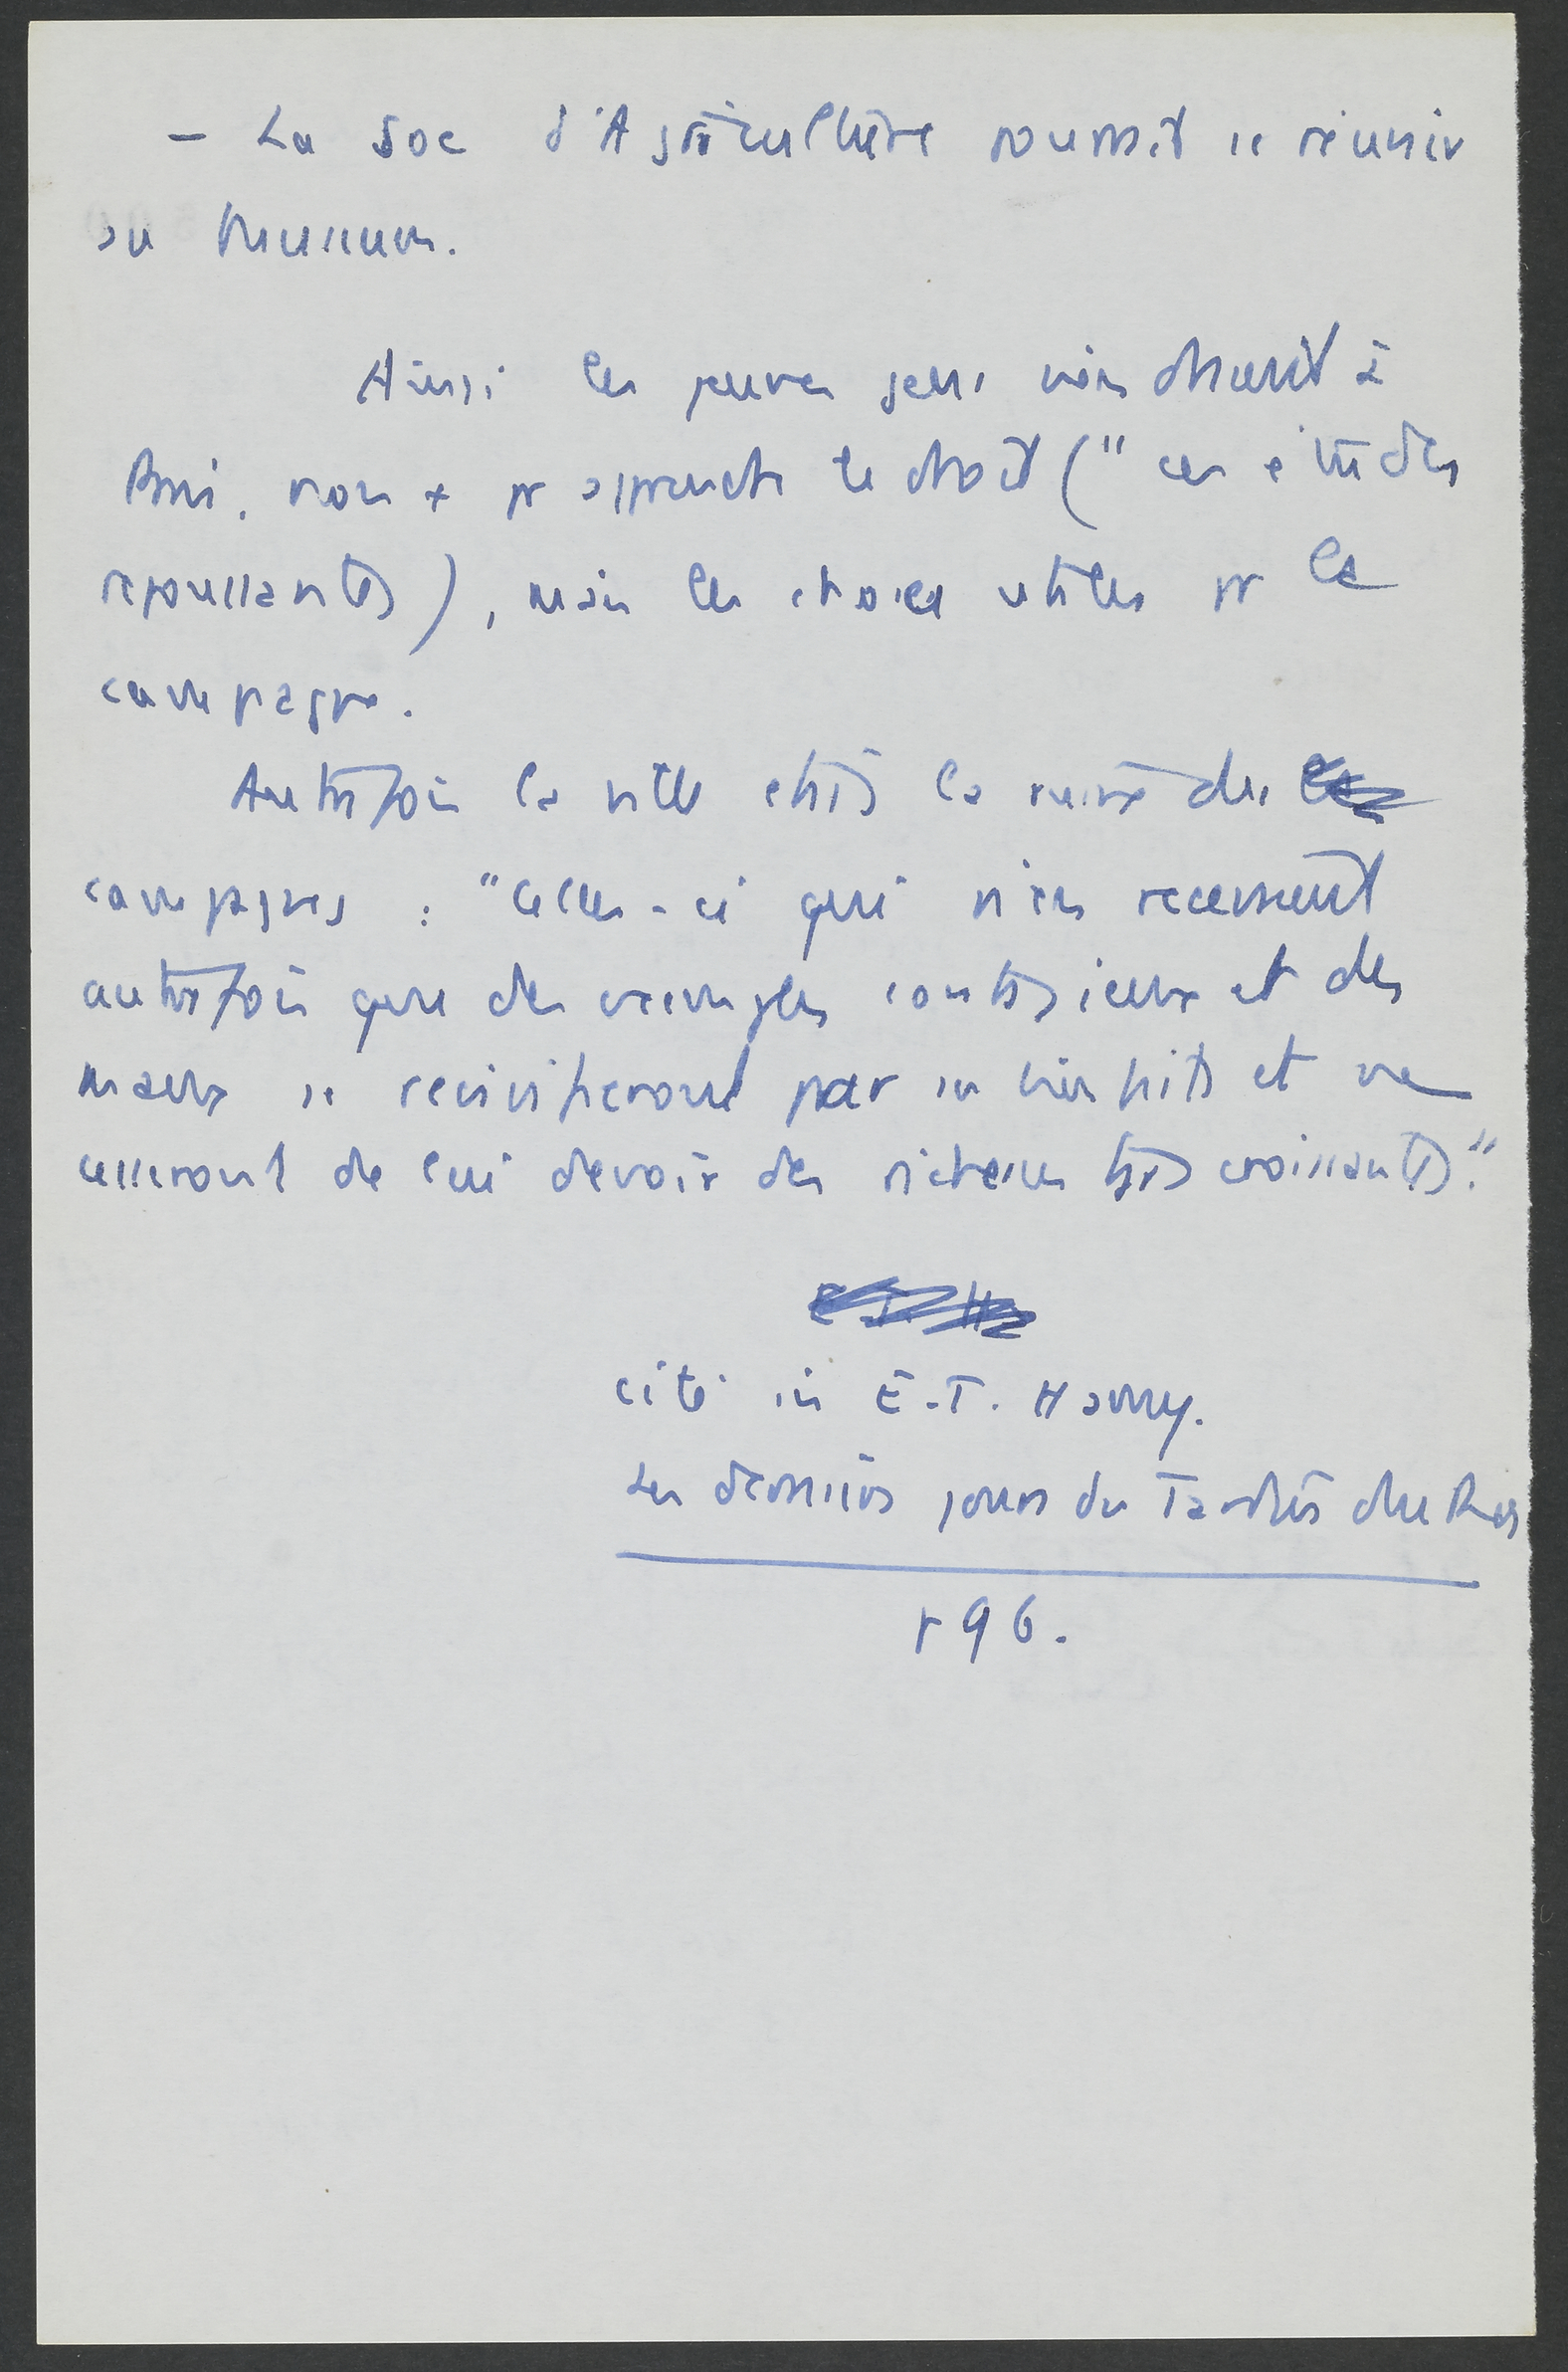 - La Soc d'Agriculture pourrait se réunir
au Museum.
Ainsi les jeunes gens viendraient à
Paris, non + pr apprendre le droit ("ces études
repoussantes), mais les choses utiles pr la
campagne.
Autrefois la ville était la ruine des
campagnes : "celles-ci qui n'en recevaient
autrefois que des exemples contagieux et des
maux se revivifieront par ses bienfaits et ne
cesseront de lui devoir des richesses très croissantes."
cité in E.T. Hamy.
Les derniers jours du Jardin du Roy
p 96.